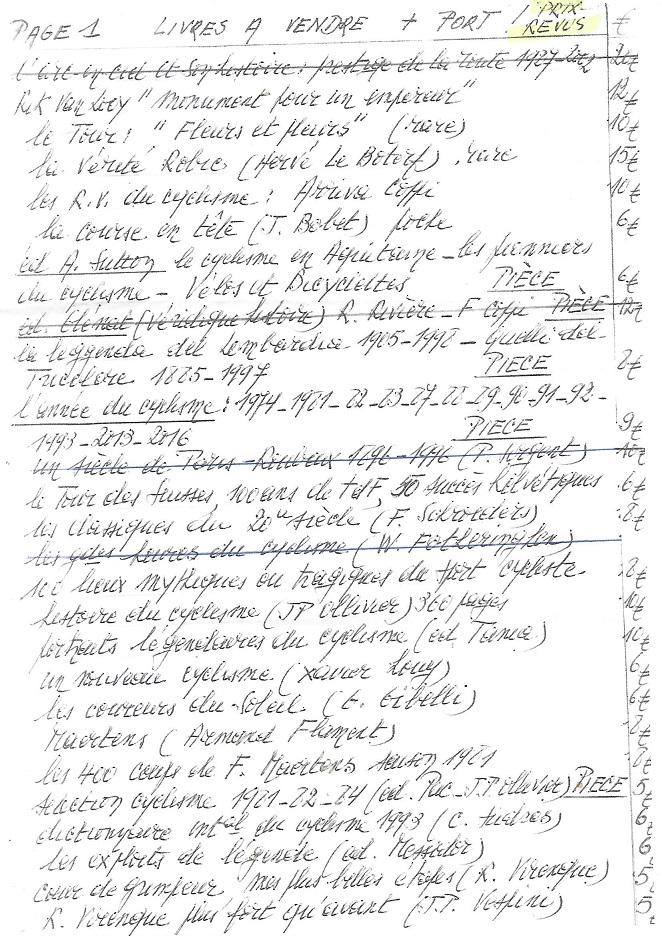 PAGE 1 LIVRES A VENDRE + PORT ! PRIX REVUS €
l'arc en ciel et son histoire : prestige de la route 1927-2002
Rik Van Looy "Monument pour un empereur" 12€
le Tour : "Fleurs et pleurs" (rare) 10€
la Vérité Robic (Hervé Le Boterf) rare 15€
les R.V. du cyclisme : Arriva Coppi 10€
la course en tête (J. Bobet) poche 6€
éd A. Sutton le cyclisme en Aquitaine - les pionniers
du cyclisme - Vélos et Bicyclettes PIÈCE 6€
éd. Glénat (Véridique histoire) R. Rivière - F Coppi PIÈCE 12€
la leggenda del Lombardia 1905-1998 - Quelli del
Tricolore 1885-1997 PIECE 8€
l'année du cyclisme : 1974-1981-82-83-87-88-89-90-91-92-
1993-2013-2016 PIECE 9€
un siècle de Paris-Roubaix 1896-1996 (P. Sergent) 10€
le Tour des Suisses, 100 ans de TdF, 50 succès helvétiques 6€
les classiques du 20e siècle (F. Schroeders) 8€
les gdes heures du cyclisme (W. Fotheringham)
100 lieux mythiques ou tragiques du sport cycliste 8€
histoire du cyclisme (JP Ollivier) 360 pages 10€
portraits légendaires du cyclisme (éd Tana) 10€
un nouveau cyclisme (Xavier Louy) 6€
les coureurs du Soleil (E. Gibelli) 6€
Maertens (Armand Flament) 8€
les 400 coups de F. Maertens saison 1981 8€
sélection cyclisme 1981-82-84 (éd. Pac - J.P. Ollivier) PIECE 5€
dictionnaire intal du cyclisme 1993 (C. Sudres) 6€
les exploits de légende (éd. Messidor) 6€
cœur de grimpeur mes plus belles étapes (R. Virenque) 5€
R. Virenque plus fort qu'avant (J.P. Vespini) 5€